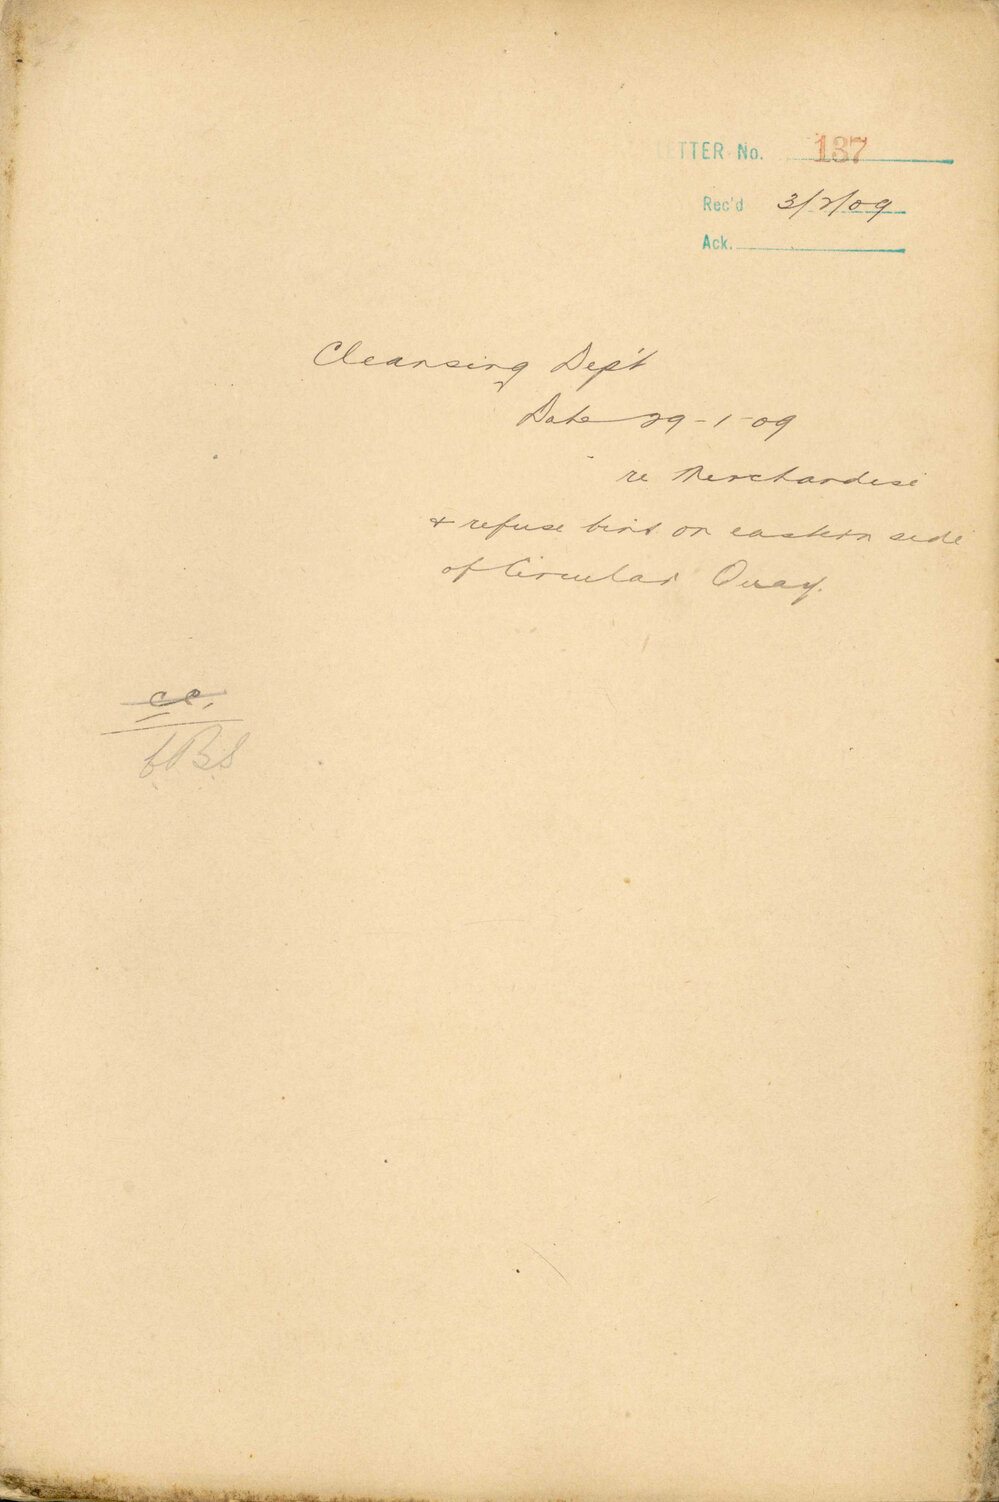 LETTER No. 137
Rec'd 3/2/09
Ack.
Cleansing Dep't
Date 29-1-09
re Merchandise
& refuse bins on eastern side
of Circular Quay.
cc.